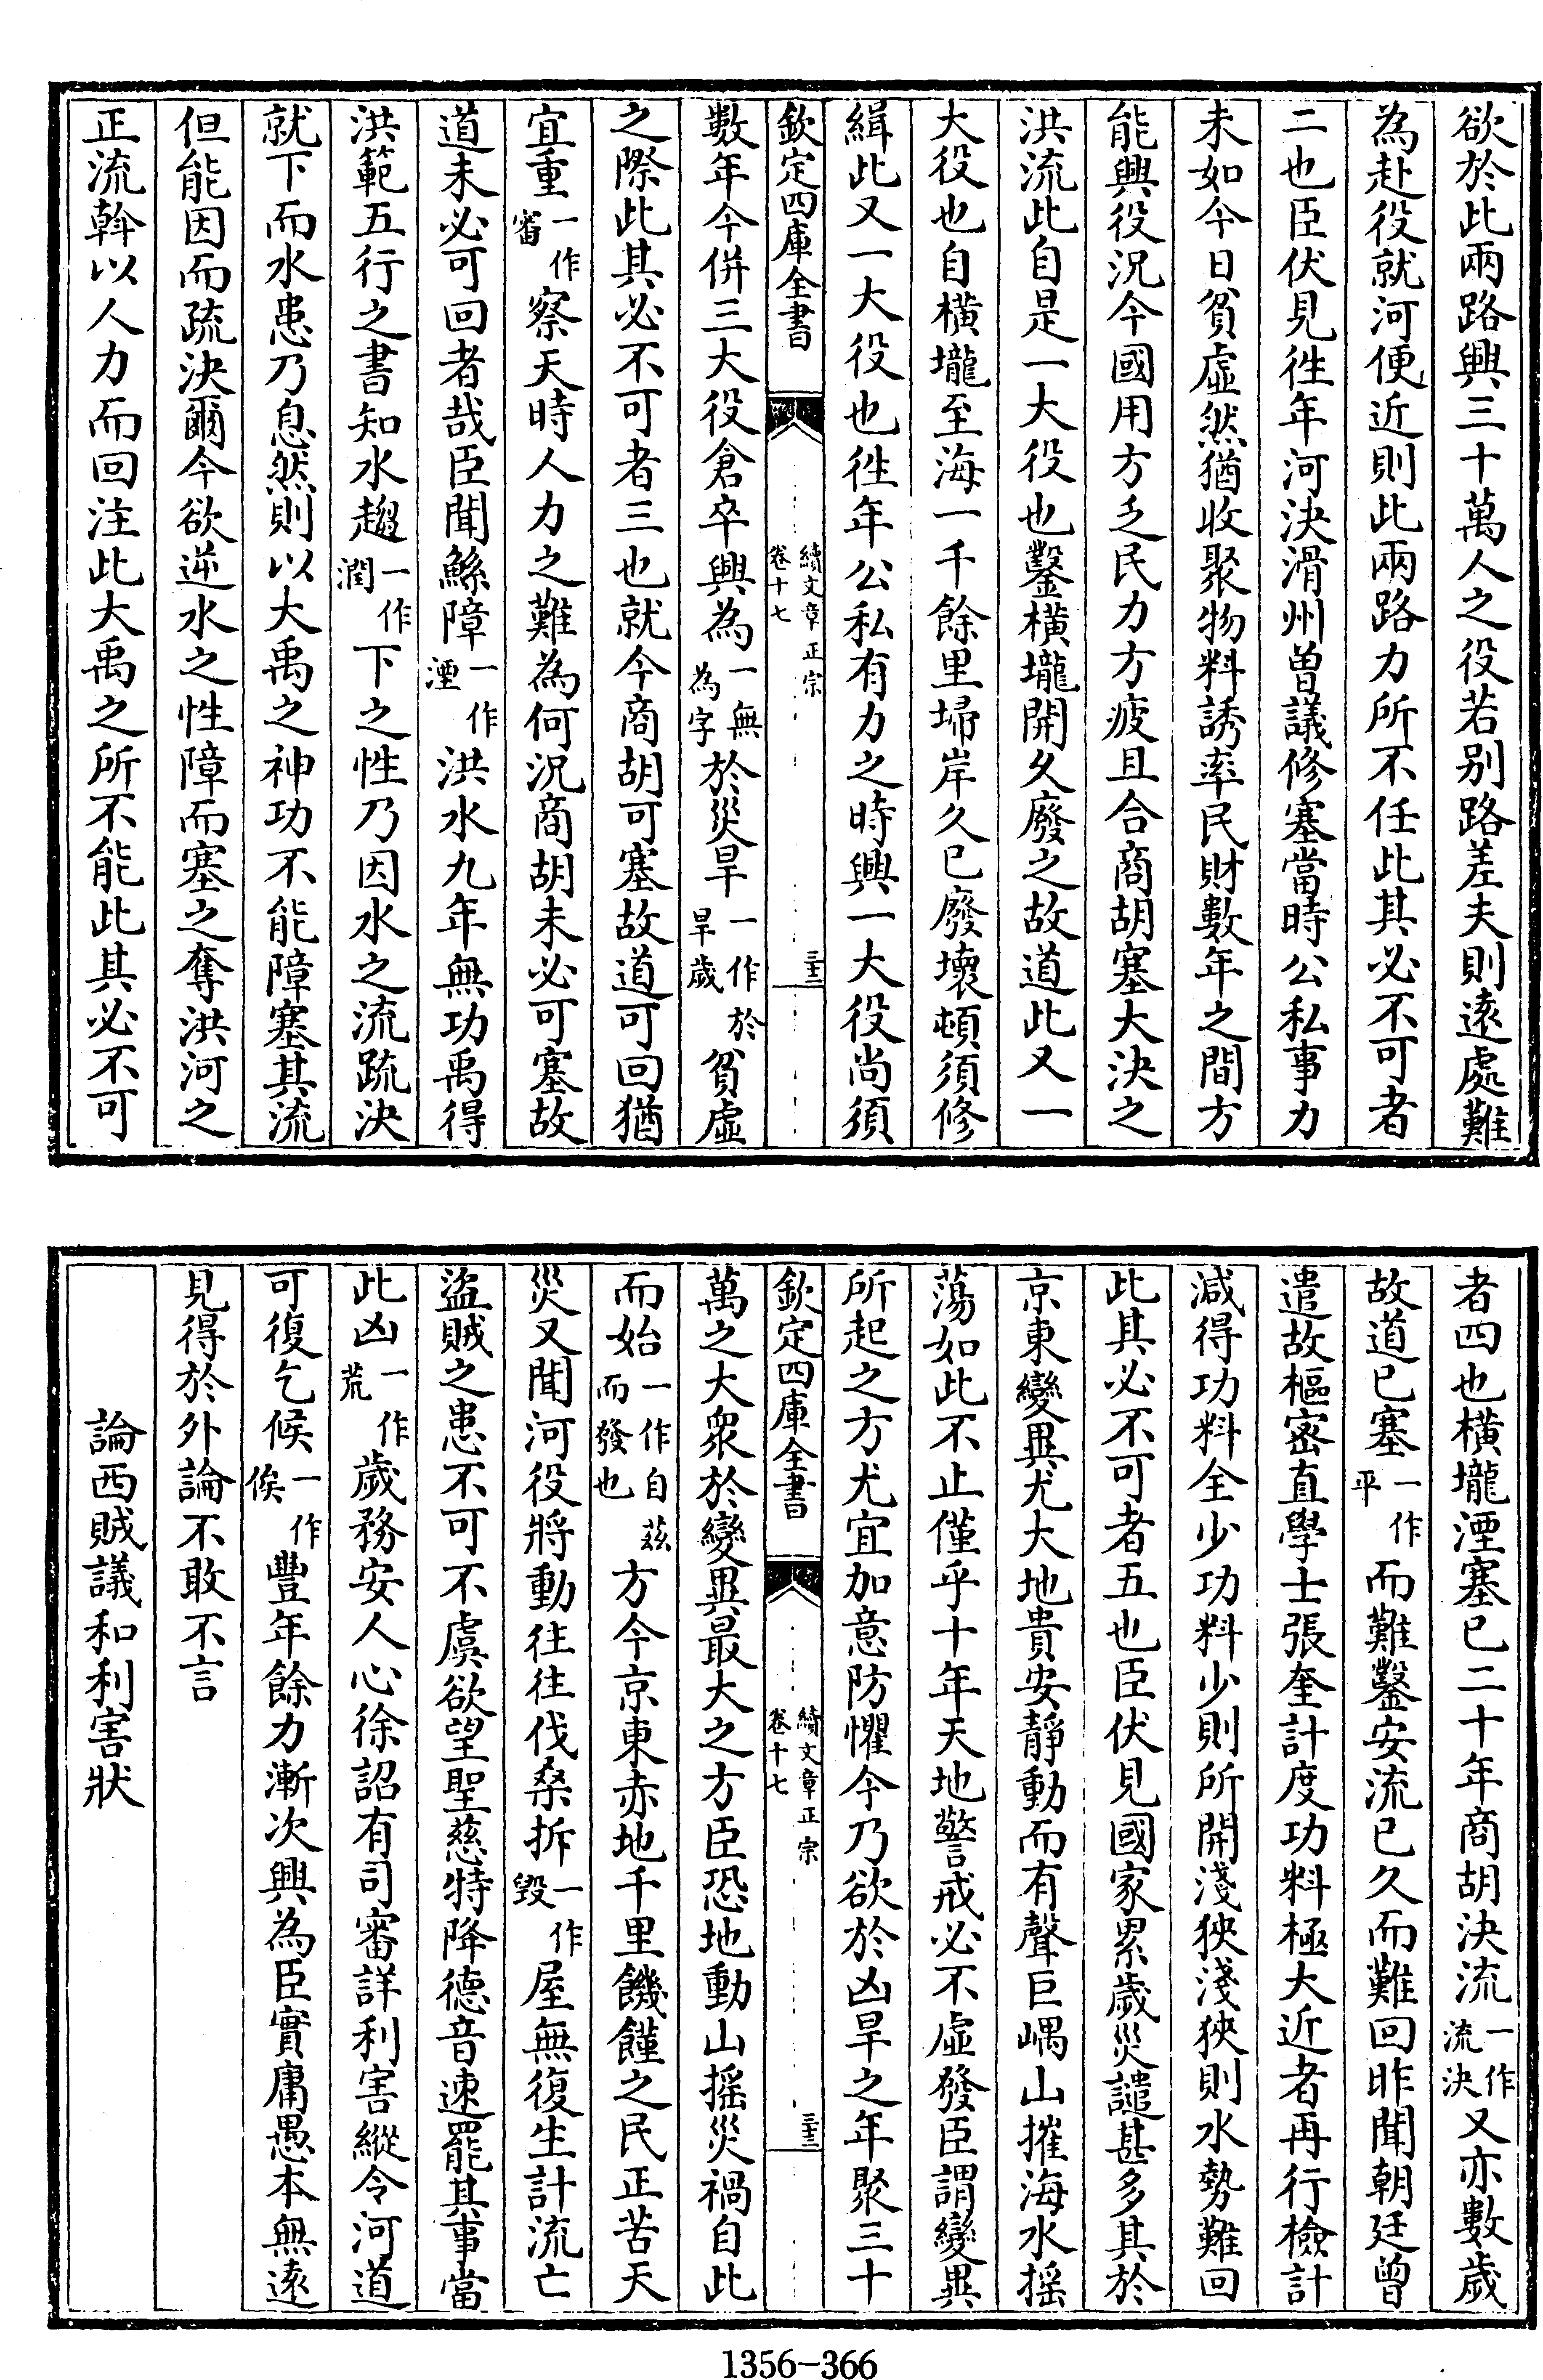 欲於此兩路興三十萬人之役若别路差夫則逺處難
為赴役就河便近則此兩路力所不任此其必不可者
二也臣伏見徃年河決滑州曽議修塞當時公私事力
未如今日貧虛然猶收聚物料誘率民財數年之間方
能興役況今國用方乏民力方疲且合商胡塞大決之
洪流此自是一大役也鑿横壠開久廢之故道此又一
大役也自横壠至海一千餘里埽岸久已廢壞頓須修
緝此又一大役也徃年公私有力之時興一大役尚須
欽定四庫全書
續文章正宗
卷十七
三十三
數年今併三大役倉卒興為一無為字於災旱一作於旱歲貧虛
之際此其必不可者三也就今商胡可塞故道可回猶
宜重一作審察天時人力之難為何況商胡未必可塞故
道未必可回者哉臣聞鯀障一作湮洪水九年無功禹得
洪範五行之書知水趨一作潤下之性乃因水之流疏決
就下而水患乃息然則以大禹之神功不能障塞其流
但能因而疏決爾今欲逆水之性障而塞之奪洪河之
正流斡以人力而回注此大禹之所不能此其必不可
者四也横壠湮塞已二十年商胡決流一作流決又亦數歲
故道已塞一作平而難鑿安流已久而難回昨聞朝廷曽
遣故樞密直學士張奎計度功料極大近者再行檢計
減得功料全少功料少則所開淺狹淺狹則水勢難回
此其必不可者五也臣伏見國家累歲災譴甚多其於
京東變異尤大地貴安靜動而有聲巨嵎山摧海水搖
蕩如此不止僅乎十年天地警戒必不虛發臣謂變異
所起之方尤宜加意防懼今乃欲於凶旱之年聚三十
欽定四庫全書
續文章正宗
卷十七
三十三
萬之大衆於變異最大之方臣恐地動山搖災禍自此
而始一作自茲而發也方今京東赤地千里饑饉之民正苦天
災又聞河役將動往往伐桑拆一作毀屋無復生計流亡
盜賊之患不可不虞欲望聖慈特降德音速罷其事當
此凶一作荒歲務安人心徐詔有司審詳利害縱令河道
可復乞候一作俟豐年餘力漸次興為臣實庸愚本無逺
見得於外論不敢不言
論西賊議和利害狀
1356-366